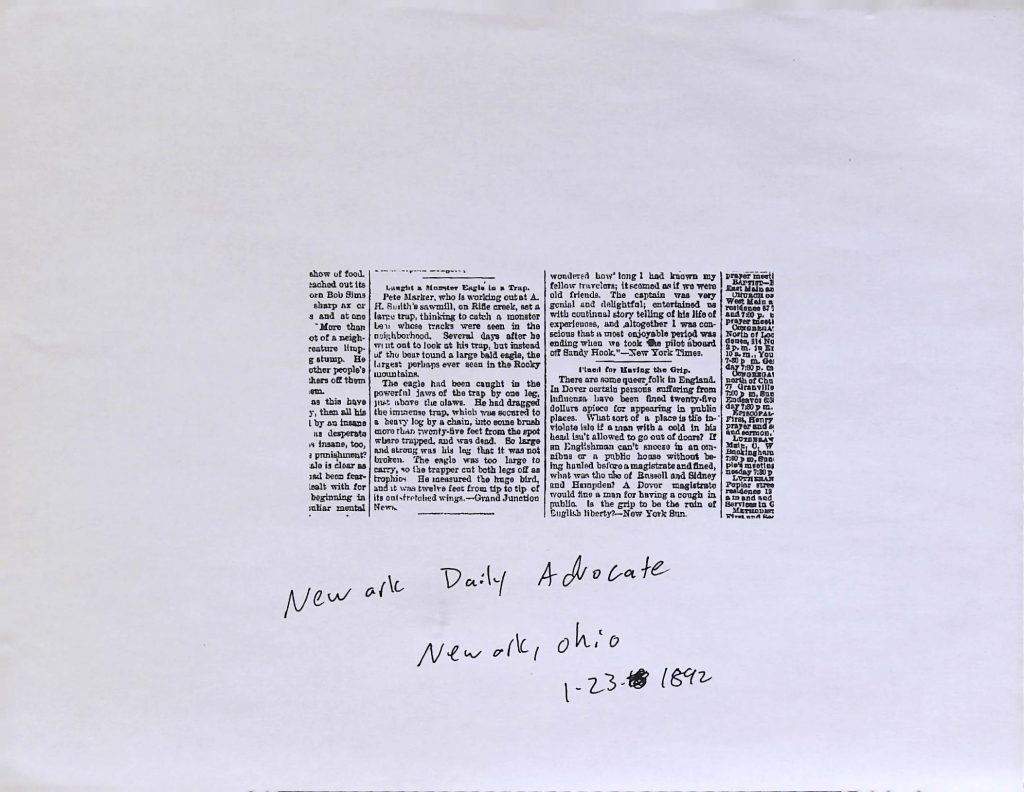 show of food.
eached out its
orn Bob Sims
sharp ax or
s and at one
"More than
ot of a neigh-
reature limp-
g stump. He
other people's
hers off them
em.
as this have
y, then all his
l by an insane
as desperate
s insane, too,
a punishment?
ale is clear as
had been fear-
ealt with for
beginning in
uliar mental
Caught a Monster Eagle in a Trap.
Pete Marker, who is working out at A.
H. Smith's sawmill, on Rifle creek, set a
large trap, thinking to catch a monster
bear whose tracks were seen in the
neighborhood. Several days after he
went out to look at his trap, but instead
of the bear found a large bald eagle, the
largest perhaps ever seen in the Rocky
mountains.
The eagle had been caught in the
powerful jaws of the trap by one leg,
just above the claws. He had dragged
the immense trap, which was secured to
a heavy log by a chain, into some brush
more than twenty-five feet from the spot
where trapped, and was dead. So large
and strong was his leg that it was not
broken. The eagle was too large to
carry, so the trapper cut both legs off as
trophies. He measured the huge bird,
and it was twelve feet from tip to tip of
its outstretched wings.—Grand Junction
News.
wondered how long I had known my
fellow travelers; it seemed as if we were
old friends. The captain was very
genial and delightful; entertained us
with continual story telling of his life of
experiences, and altogether I was con-
scious that a most enjoyable period was
ending when we took the pilot aboard
off Sandy Hook."—New York Times.
Fined for Having the Grip.
There are some queer folk in England.
In Dover certain persons suffering from
influenza have been fined twenty-five
dollars apiece for appearing in public
places. What sort of a place is the in-
violate isle if a man with a cold in his
head isn't allowed to go out of doors? If
an Englishman can't sneeze in an om-
nibus or a public house without be-
ing hauled before a magistrate and fined,
what was the use of Russell and Sidney
and Hampden? A Dover magistrate
would fine a man for having a cough in
public. Is the grip to be the ruin of
English liberty?—New York Sun.
prayer meeti
BAPTIST—
East Main an
CHURCH OF
West Main a
residence 87
and 7:00 p.
prayer meeti
CONGREGA
North of Loc
dence, 214 No
2 p. m. in
10 a. m., You
7:30 p. m. Ge
day 7:30 p. m.
CONGREGAT
north of Chu
77 Granville
7:30 p. m.
Endeavor 6:3
day 7:30 p. m
EPISCOPAL
First, Henry
prayer and s
and sermon,
LUTHERAN
Main, C. W
Buckingham
7:00 p. m, Sun
ple's meetin
nesday 7:30 p
LUTHERAN
Poplar stree
residence 13
a m and and
Services in G
METHODIST
First and
Newark Daily Advocate
Newark, Ohio
1-23- 1892